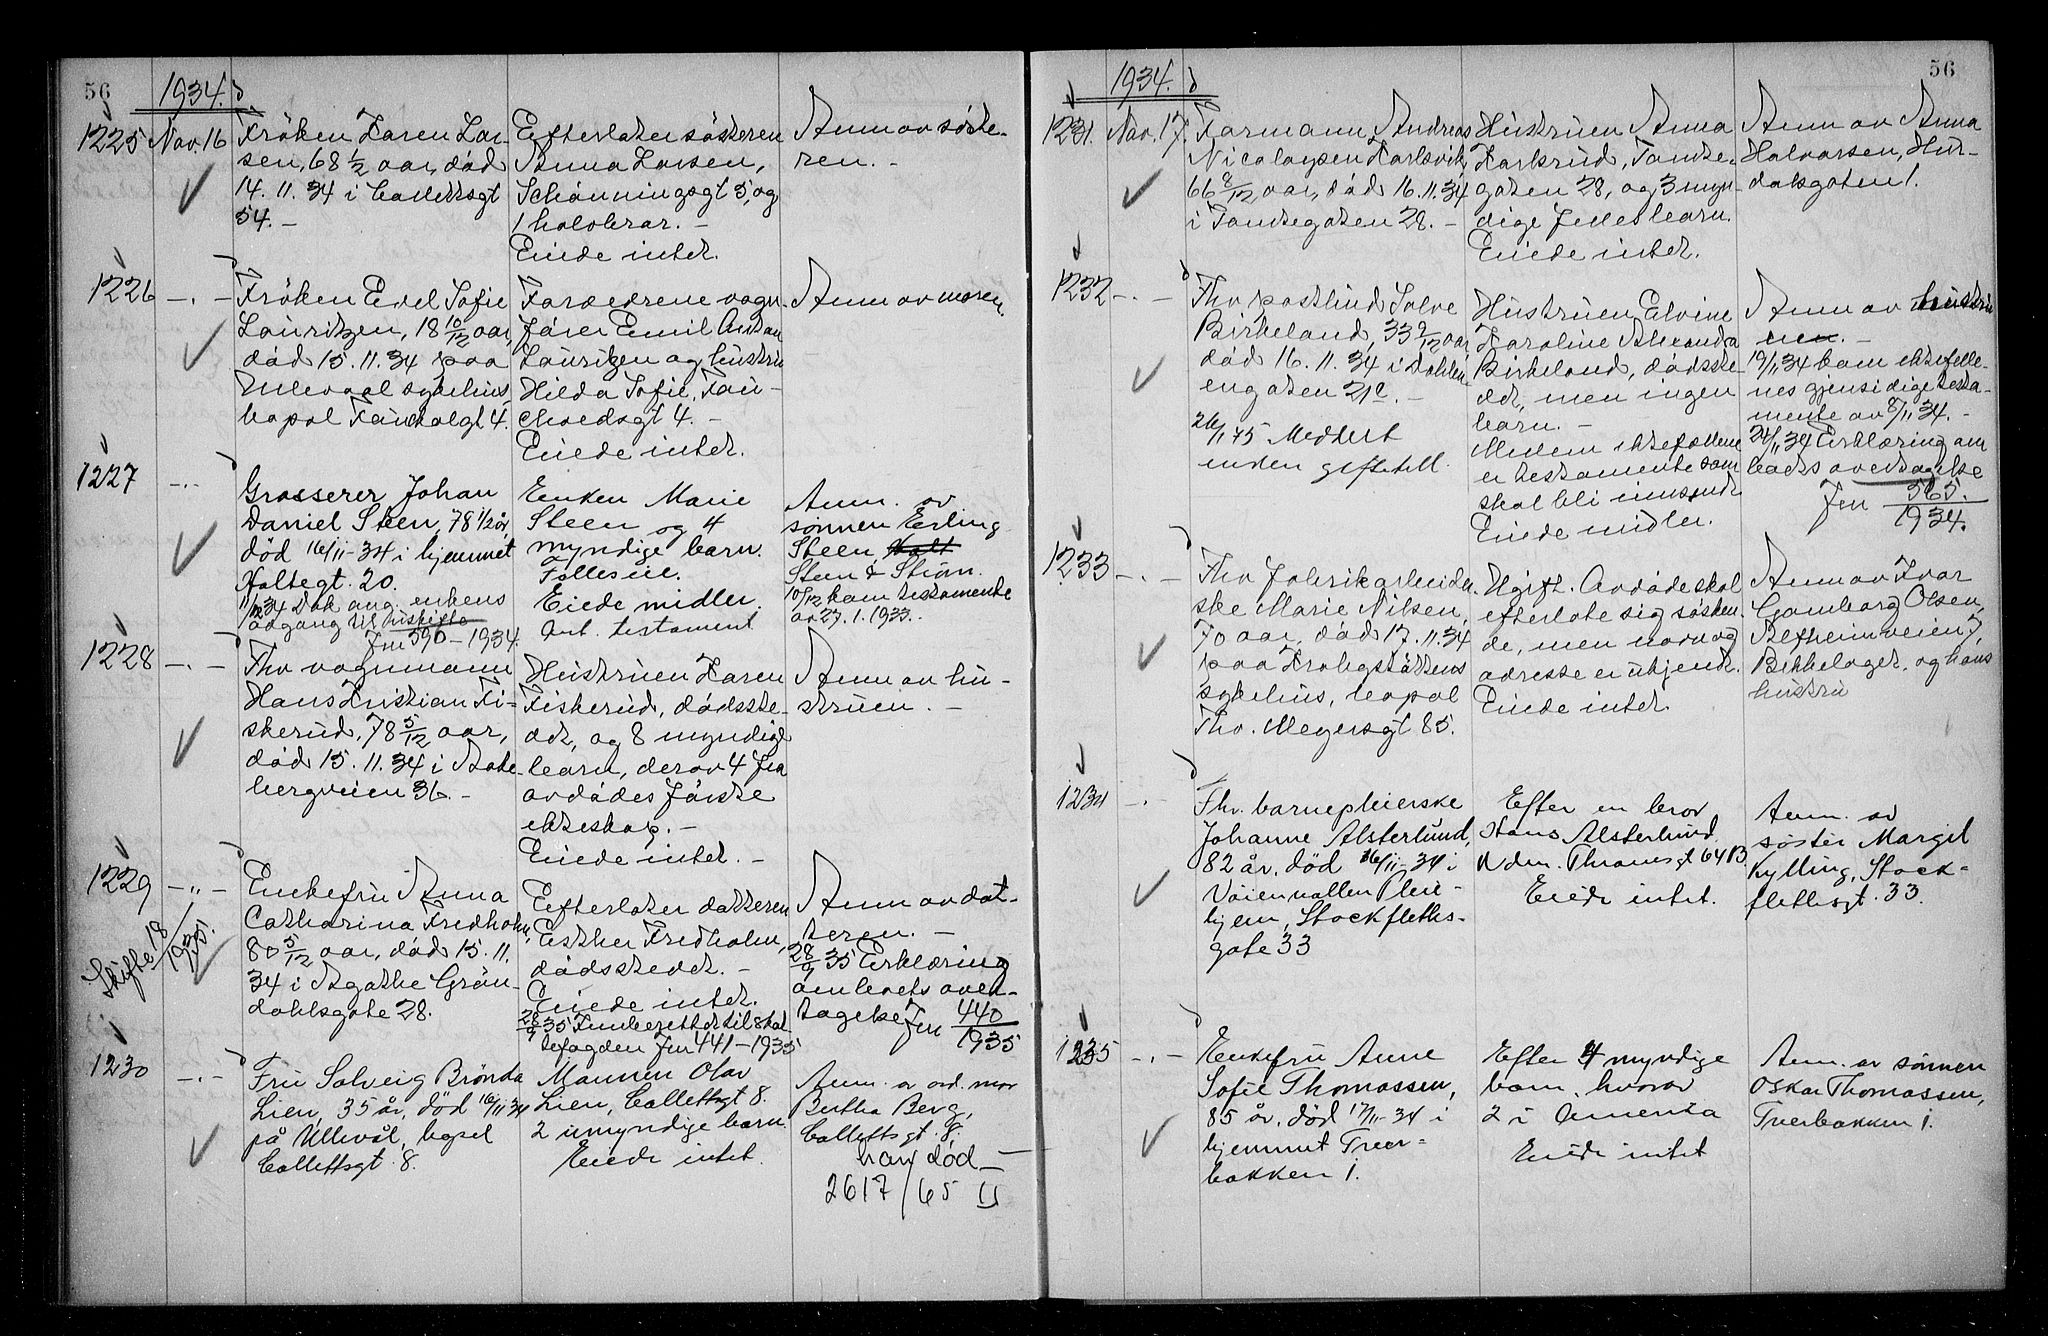 56
1934.
1225 Nov. 16
Frøken Karen Lar-
sen, 68 1/2 aar, død
14. 11. 34 i Collettsgt
54. -
Efterlater søsteren
Anna Larsen,
Schønningsgt 5, og
1 halvbror. -
Eiede intet.
Anm av søste-
ren. -
1226 - . -
Frøken Edel Sofie
Lauritzen, 18 10/12 aar,
død 15. 11. 34 paa
Ullevaal sykehus,
bopæl 4.
Foreldrene vogn-
fører Emil Anton
Lauritzen og hustru
Hilda Sofie,
4. -
Eiede intet.
Anm av moren
1227 - . -
Grosserer Johan
Daniel Steen, 78 1/2 år,
død 16/11-34 i hjemmet
Holtegt. 20.
11/12 34 Dok ang. enkens
adgang til uskifte
Jnr 590 - 1934.
Enken Marie
Steen og 4
myndige barn.
Fælleseie.
Eiede midler.
Ant. testament
Anm. av
sønnen Erling
Steen
Steen & Strøm.
10/12 kom testamente
av 27. 1. 1933.
1228 - . -
Fhv vognmann
Hans Kristian Fi-
skerud, 78 5/12 aar,
død 15. 11. 34 i
bergveien 36. -
Hustruen Karen
Fiskerud, dødsste-
det, og 8 myndige
barn, derav 4 fra
avdødes første
ekteskap. -
Eiede intet. -
Anm av hu-
struen. -
1229 - " -
Skifte 18/1935.
Enkefru Anna
Catharina Fredholm,
80 5/12 aar, død 15. 11.
34 i Agathe Grøn-
dahlsgate 28.
Efterlater datteren
Esther Fredholm,
dødsstedet. -
Eiede intet.
28/9 35 Innberettet til skat
tefogden Jnr 441 - 1935
Anm av dat-
teren. -
28/9 35 Erklæring
om boets over-
tagelse Jnr 440
1935
1230 - . -
Fru Solveig Brønda
Lien, 35 år, død 16/11 34
på Ullevål, bopel
Collettsgt. 8.
Mannen Olav
Lien, Collettsgt 8.
2 umyndige barn
Eiede intet.
Anm. av avd. mor
Bertha Berg,
Collettsgt. 8.
han død -
2617/65 II
56
1934.
1231. Nov. 17.
Formann Andreas
Nicolaysen
66 8/12 aar, død 16. 11. 34
i Tomtegaten 28. -
Hustruen Anna
Tomte-
gaten 28, og 3 myn-
dige felles barn.
Eiede intet.
Anm av Anna
Halvorsen, Hur-
dalsgaten 1.
1232 - . -
Fhv postbud Salve
Birkeland, 33 9/12 aar,
død 16. 11. 34 i Dahlen
engaten 21c. -
26/1 75 Meddelt
enken gifte till.
Hustruen Elvine
Karoline Alexandra
Birkeland, dødsste-
det, men ingen
barn. -
Mellem ektefællene
er testamente som
skal bli innsendt
Eiede midler.
Anm av hustru
en. -
19/11 34 kom ektefelle-
nes gjensidige testa-
mente av 8/11 34. -
24/11 34 Erklæring om
boets overtagelse
Jnr 565.
1934.
1233 - . -
Fhv fabrikarbeider-
ske Marie Nilsen,
70 aar, død 17. 11. 34
paa Krohgstøttens
sykehus, bopæl
Thv. Meyersgt 85.
Ugift. Avdøde skal
efterlate sig søsken-
de, men navn og
adresse er ukjendt.
Eiede intet.
Anm av Ivar
Gamborg Olsen,
Alfheimveien 7,
Bekkelaget, og hans
hustru
1234 - . -
Fhv. barnepleierske
Johanne Alsterlund,
82 år, død 16/11-34 i
Vøienvollen Pleie-
hjem, Stockfleths-
gate 33
Efter en bror
Hans Alsterlund
Thranesgt 64 B.
Eiede intet.
Anm. av
søster Margit
Kylling, Stock-
flethsgt. 33.
1235 - . -
Enkefru Anne
Sofie Thomassen,
85 år, død 17/11-34 i
hjemmet Tver-
bakken 1.
Efter 4 myndige
barn, hvorav
2 i Amerika
Eiede intet
Anm. av sønnen
Oskar Thomassen,
Tverbakken 1.